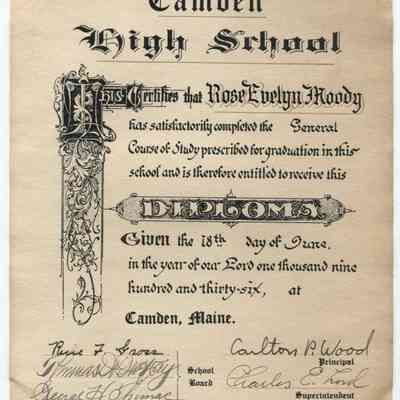 Camden
High School
This Certifies that Rose Evelyn Moody
has satisfactorily completed the General
Course of Study prescribed for graduation in this
school and is therefore entitled to receive this
DIPLOMA
Given the 18th day of June,
in the year of our Lord one thousand nine
hundred and thirty-six, at
Camden, Maine.
F. Gross
Carlton P. Wood
Principal
Thomas
School
Board
Charles E. Lord
Superintendent
George H. Thomas